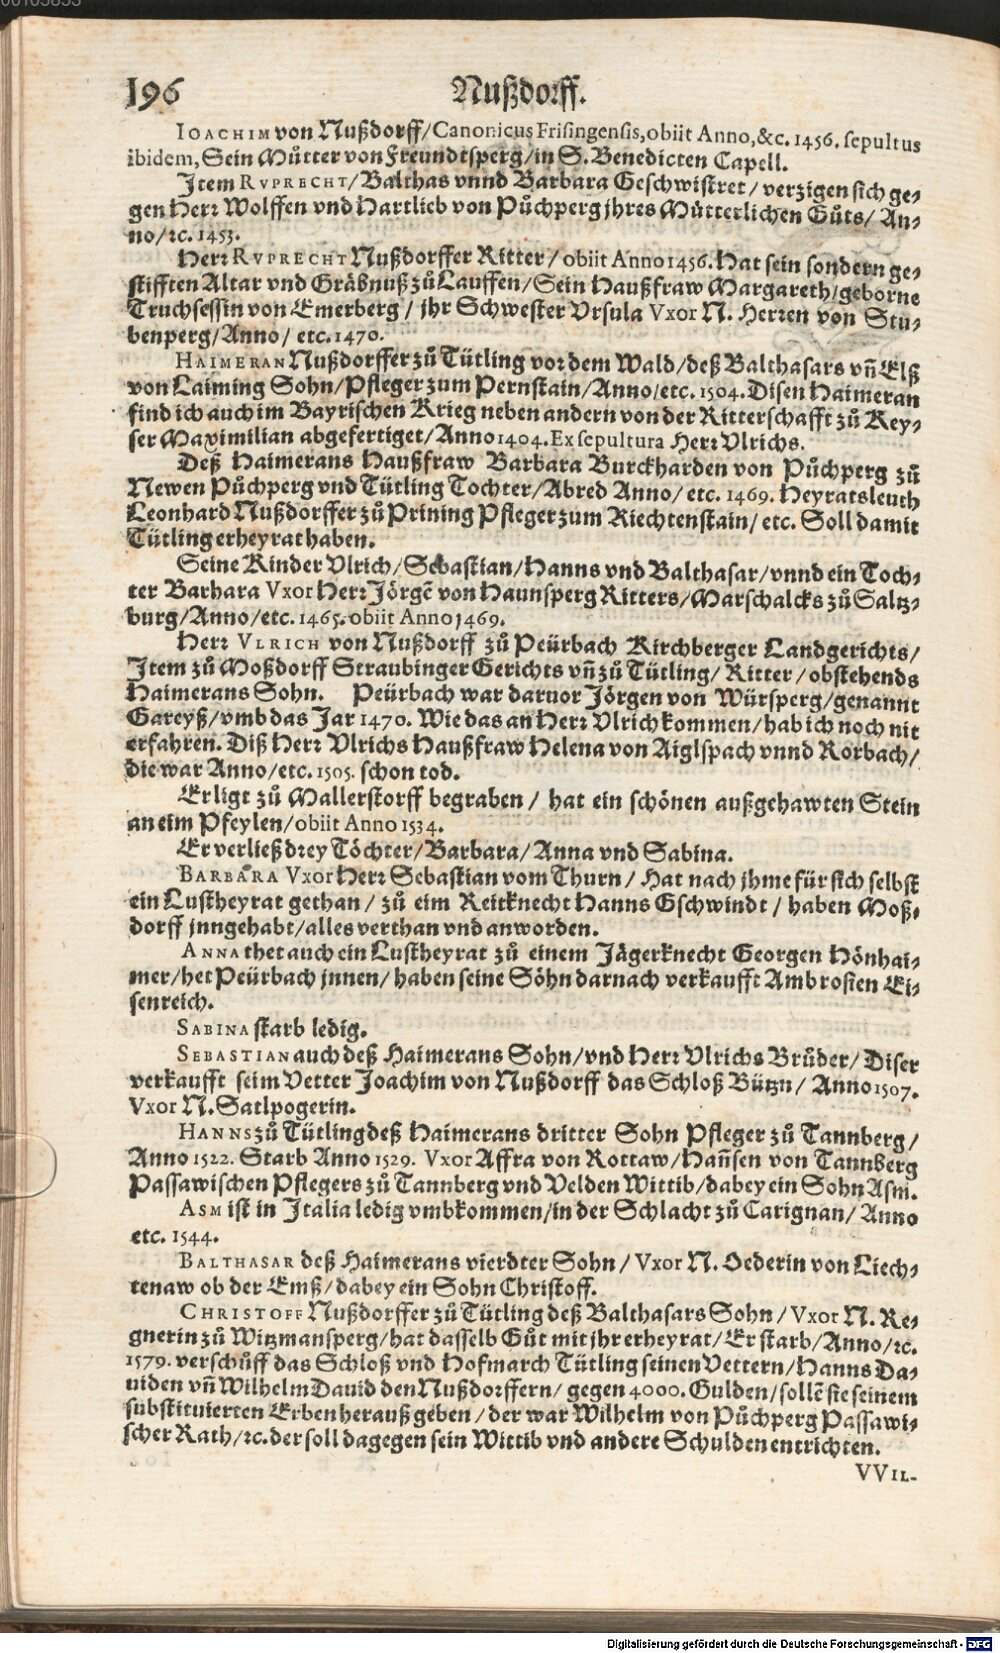 00105853
196 Nußdorff.
IOACHIM von Nußdorff/Canonicus Frisingensis, obiit Anno, &c. 1456. sepultus
ibidem, Sein Můtter von Freundtsperg/in S. Benedicten Capell.
Jtem RVPRECHT/Balthas vnnd Barbara Geschwistret/verzigen sich ge-
gen Herr Wolffen vnd Hartlieb von Půchperg jhres Mütterlichen Gůts/An-
no/rc. 1453.
Herr RVPRECHT Nußdorffer Ritter/obiit Anno 1456. Hat sein sondern ge-
stifften Altar vnd Gräbnuß zů Lauffen/Sein Haußfraw Margareth/geborne
Truchsessin von Emerberg/jhr Schwester Vrsula Vxor N. Herren von Stu-
benperg/Anno/etc. 1470.
HAIMERAN Nußdorffer zů Tütling vor dem Wald/deß Balthasars vñ Elß
von Laiming Sohn/Pfleger zum Pernstain/Anno/etc. 1504. Disen Haimeran
find ich auch im Bayrischen Krieg neben andern von der Ritterschafft zů Key-
ser Maximilian abgefertiget/Anno 1404. Ex sepultura Herr Vlrichs.
Deß Haimerans Haußfraw Barbara Burckharden von Půchperg zů
Newen Půchperg vnd Tütling Tochter/Abred Anno/etc. 1469. Heyratsleuth
Leonhard Nußdorffer zů Prining Pfleger zum Riechtenstain/etc. Soll damit
Tütling erheyrat haben.
Seine Kinder Vlrich/Sebastian/Hanns vnd Balthasar/vnnd ein Toch-
ter Barbara Vxor Herr Jörgẽ von Haunsperg Ritters/Marschalcks zů Saltz-
burg/Anno/etc. 1465. obiit Anno 1469.
Herr VLRICH von Nußdorff zů Peürbach Kirchberger Landgerichts/
Jtem zů Moßdorff Straubinger Gerichts vñ zů Tütling/Ritter/obstehends
Haimerans Sohn. Peürbach war daruor Jörgen von Würsperg/genannt
Gareyß/vmb das Jar 1470. Wie das an Herr Vlrich kommen/hab ich noch nit
erfahren. Diß Herr Vlrichs Haußfraw Helena von Aiglspach vnnd Rorbach/
die war Anno/etc. 1505. schon tod.
Er ligt zů Mallerstorff begraben/hat ein schönen außgehawten Stein
an eim Pfeylen/obiit Anno 1534.
Er verließ drey Töchter/Barbara/Anna vnd Sabina.
BARBARA Vxor Herr Sebastian vom Thurn/Hat nach jhme für sich selbst
ein Lustheyrat gethan/zů eim Reitknecht Hanns Gschwindt/haben Moß-
dorff jnngehabt/alles verthan vnd anworden.
ANNA thet auch ein Lustheyrat zů einem Jägerknecht Georgen Hönhai-
mer/het Peürbach jnnen/haben seine Söhn darnach verkaufft Ambrosien Ei-
senreich.
SABINA starb ledig.
SEBASTIAN auch deß Haimerans Sohn/vnd Herr Vlrichs Brůder/Diser
verkaufft seim Vetter Joachim von Nußdorff das Schloß Bützn/Anno 1507.
Vxor N. Satlpogerin.
HANNS zů Tütling deß Haimerans dritter Sohn Pfleger zů Tannberg/
Anno 1522. Starb Anno 1529. Vxor Affra von Rottaw/Hañsen von Tannberg
Passawischen Pflegers zů Tannberg vnd Velden Wittib/dabey ein Sohn Asm.
ASM ist in Jtalia ledig vmbkommen/in der Schlacht zů Carignan/Anno
etc. 1544.
BALTHASAR deß Haimerans vierdter Sohn/Vxor N. Oederin von Liech-
tenaw ob der Emß/dabey ein Sohn Christoff.
CHRISTOFF Nußdorffer zů Tütling deß Balthasars Sohn/Vxor N. Re-
gnerin zů Witzmansperg/hat dasselb Gůt mit jhr erheyrat/Er starb/Anno/rc.
1579. verschůff das Schloß vnd Hofmarch Tütling seinen Vettern/Hanns Da-
uiden vñ Wilhelm Dauid den Nußdorffern/gegen 4000. Gulden/sollẽ sie seinem
substituierten Erben herauß geben/der war Wilhelm von Půchperg Passawi-
scher Rath/rc. der soll dagegen sein Wittib vnd andere Schulden entrichten.
VVIL-
Digitalisierung gefördert durch die Deutsche Forschungsgemeinschaft - DFG